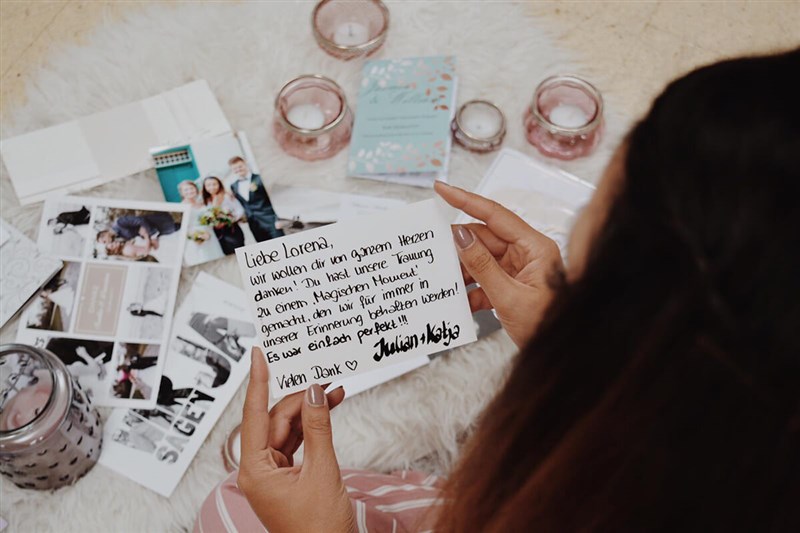 Liebe Lorena,
wir wollen dir von ganzem Herzen
danken! Du hast unsere Trauung
zu einem 'Magischen Moment'
gemacht, den wir für immer in
unserer Erinnerung behalten werden!
Es war einfach perfekt!!!
Julian + Katja
Vielen Dank ♡